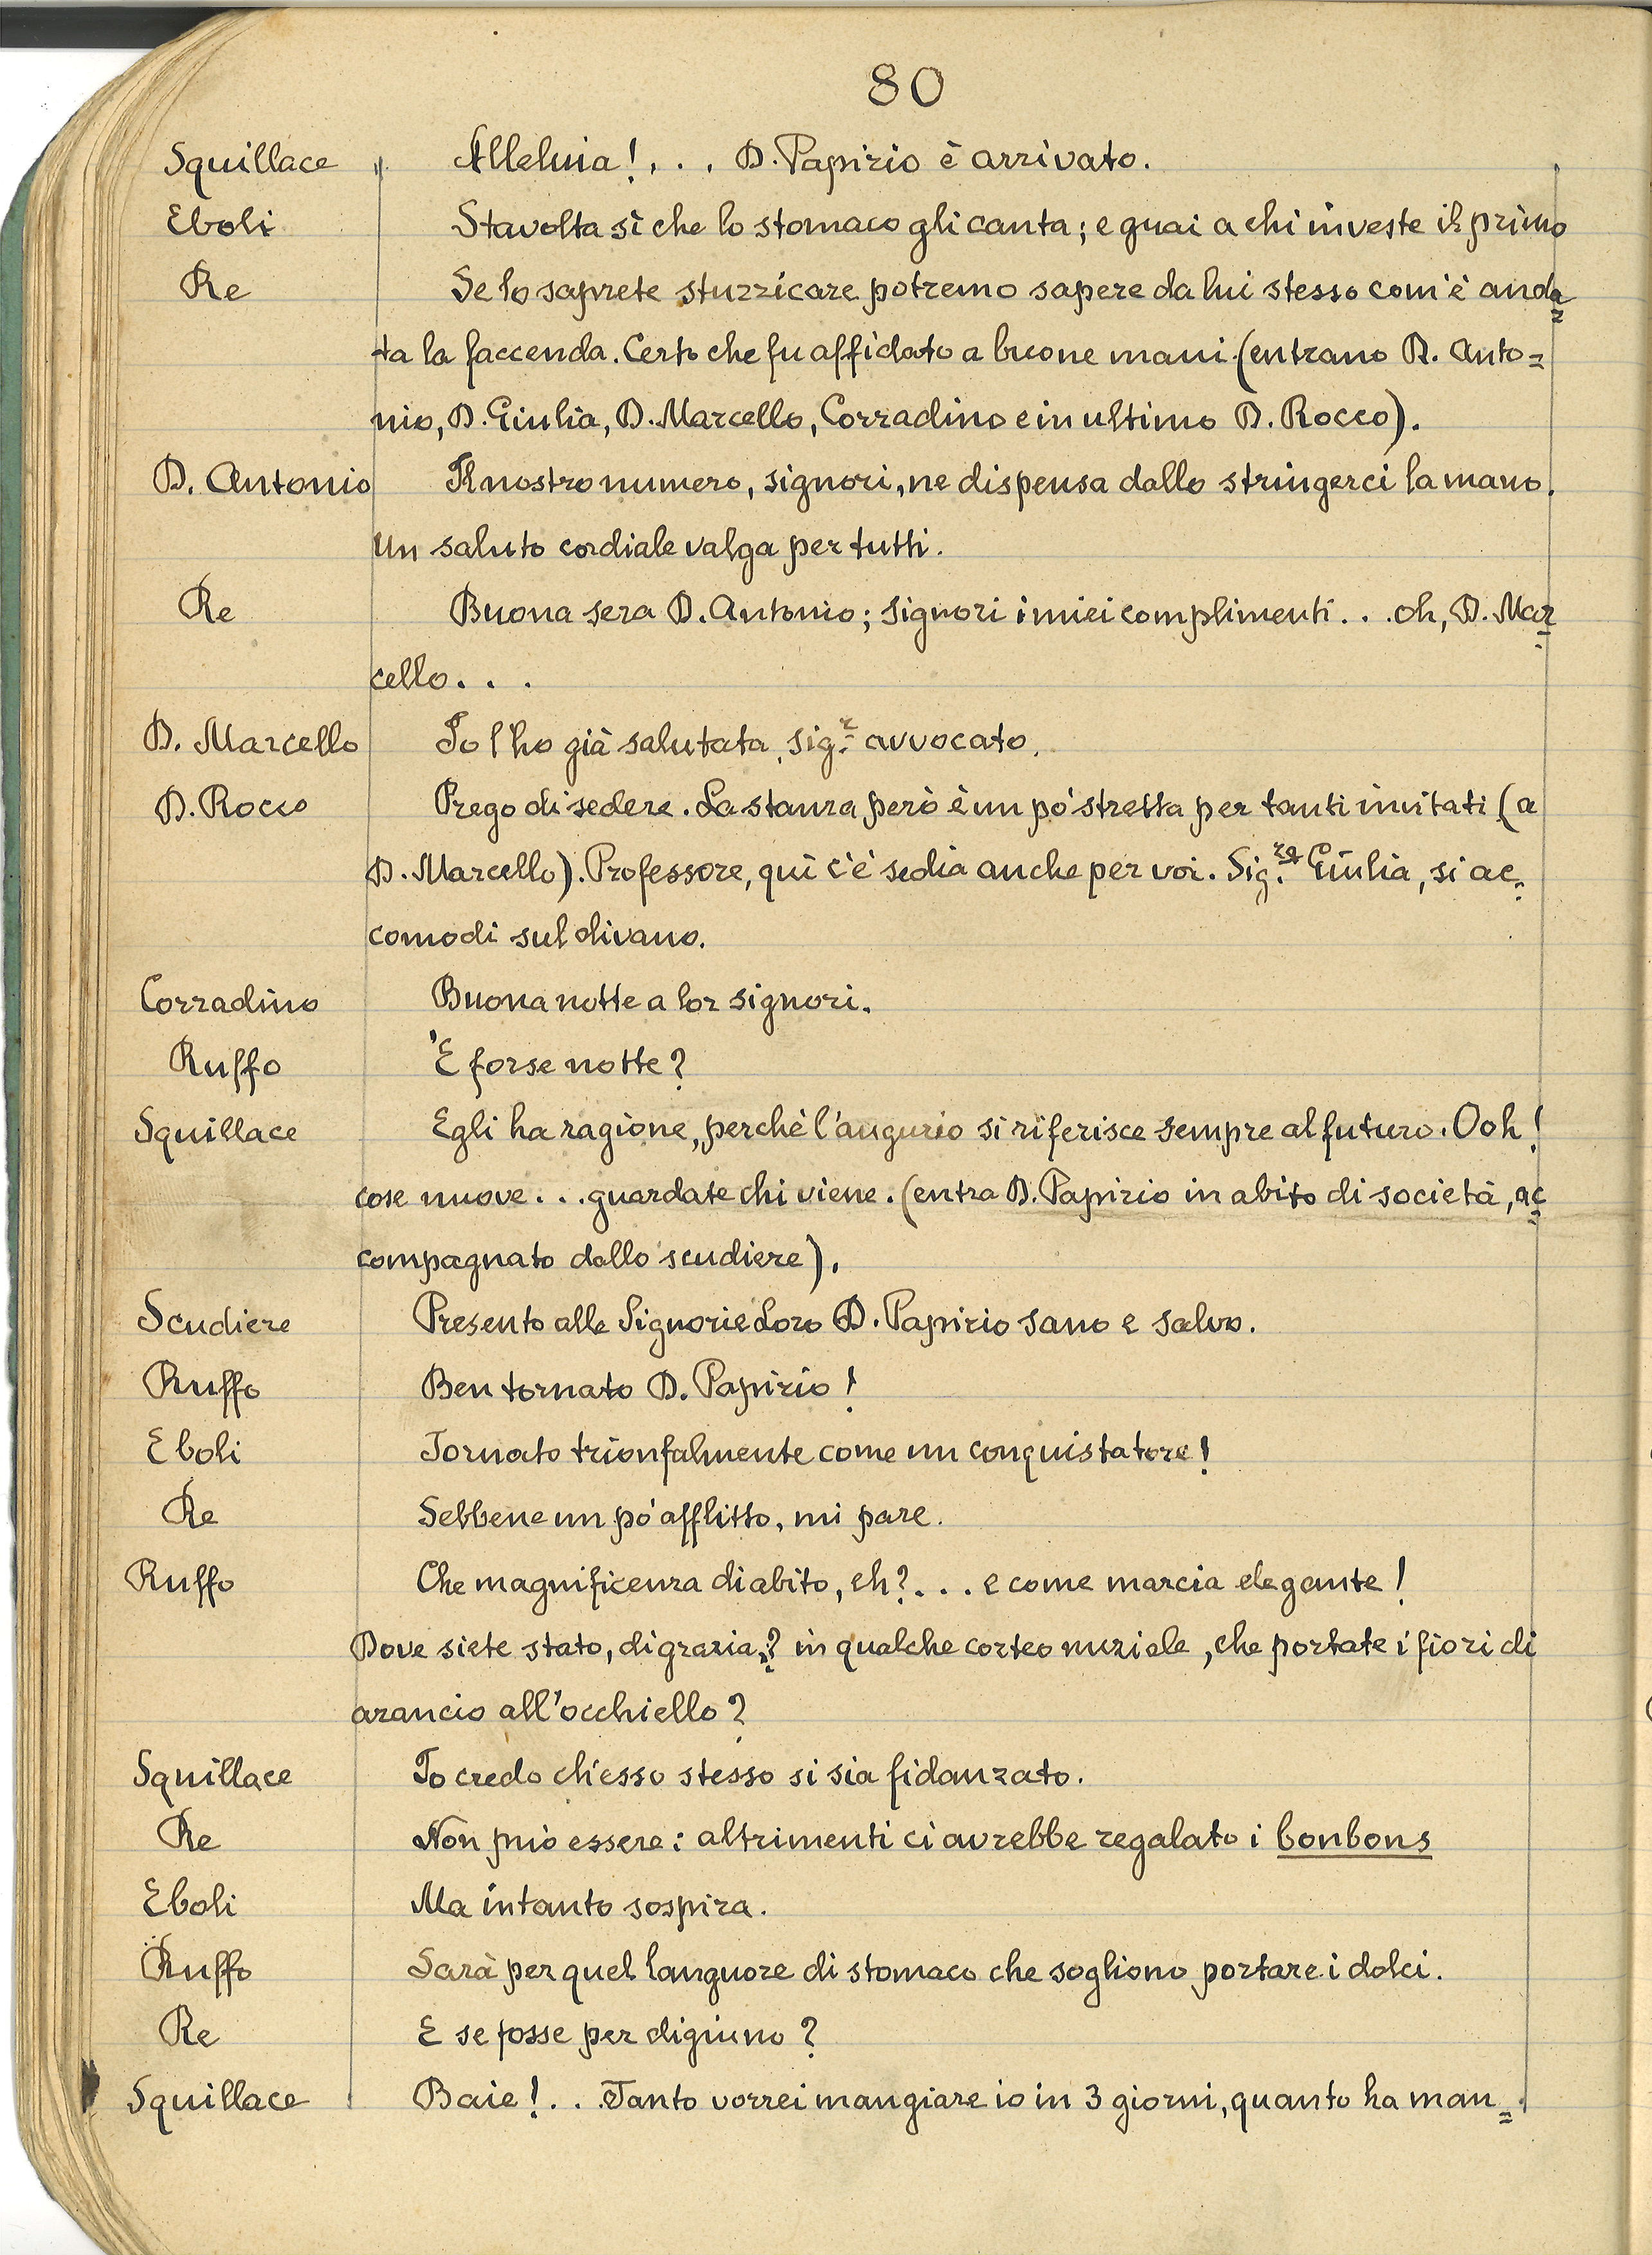 80
Squillace Alleluia!... D. Papirio è arrivato.
Eboli Stavolta sì che lo stomaco gli canta; e guai a chi investe il primo
Re Se lo saprete stuzzicare potremo sapere da lui stesso com'è anda=
ta la faccenda. Certo che fu affidato a buone mani. (entrano D. Anto=
nio, D. Giulia, D. Marcello, Corradino e in ultimo D. Rocco).
D. Antonio Il nostro numero, signori, ne dispensa dallo stringerci la mano.
Un saluto cordiale valga per tutti.
Re Buona sera D. Antonio; signori i miei complimenti... oh, D. Mar=
cello...
D. Marcello Io l'ho già salutata, sig.r avvocato.
D. Rocco Prego di sedere. La stanza però è un pó stretta per tanti invitati (a
D. Marcello). Professore, quì c'è sedia anche per voi. Sig.ra Giulia, si ac=
comodi sul divano.
Corradino Buona notte a lor signori.
Ruffo È forse notte?
Squillace Egli ha ragione, perchè l'augurio si riferisce sempre al futuro. Ooh!
cose nuove... guardate chi viene. (entra D. Papirio in abito di società, ac=
compagnato dallo scudiere).
Scudiere Presento alle Signorie Loro D. Papirio sano e salvo.
Ruffo Ben tornato D. Papirio!
Eboli Tornato trionfalmente come un conquistatore!
Re Sebbene un pó afflitto, mi pare.
Ruffo Che magnificenza di abito, eh?... e come marcia elegante!
Dove siete stato, di grazia? in qualche corteo nuziale, che portate i fiori di
arancio all'occhiello?
Squillace Io credo ch'esso stesso si sia fidanzato.
Re Non può essere: altrimenti ci avrebbe regalato i bonbons
Eboli Ma intanto sospira.
Ruffo Sarà per quel languore di stomaco che sogliono portare i dolci.
Re E se fosse per digiuno?
Squillace Baie!... Tanto vorrei mangiare io in 3 giorni, quanto ha man=